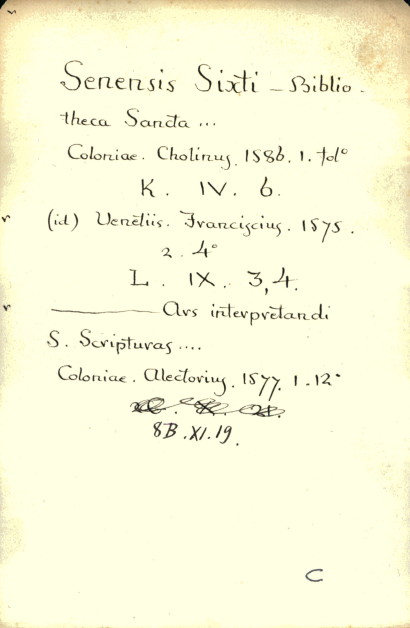 Senensis Sixti - Biblio-
theca Sancta ...
Coloniae. Cholinus. 1586. 1. fol°
K. IV. 6.
(id) Venetiis. Franciscius. 1575.
2. 4°
L. IX. 3,4.
——— Ars interpretandi
S. Scripturas ....
Coloniae. Alectorius. 1577. 1. 12°
8B.XI.19.
C